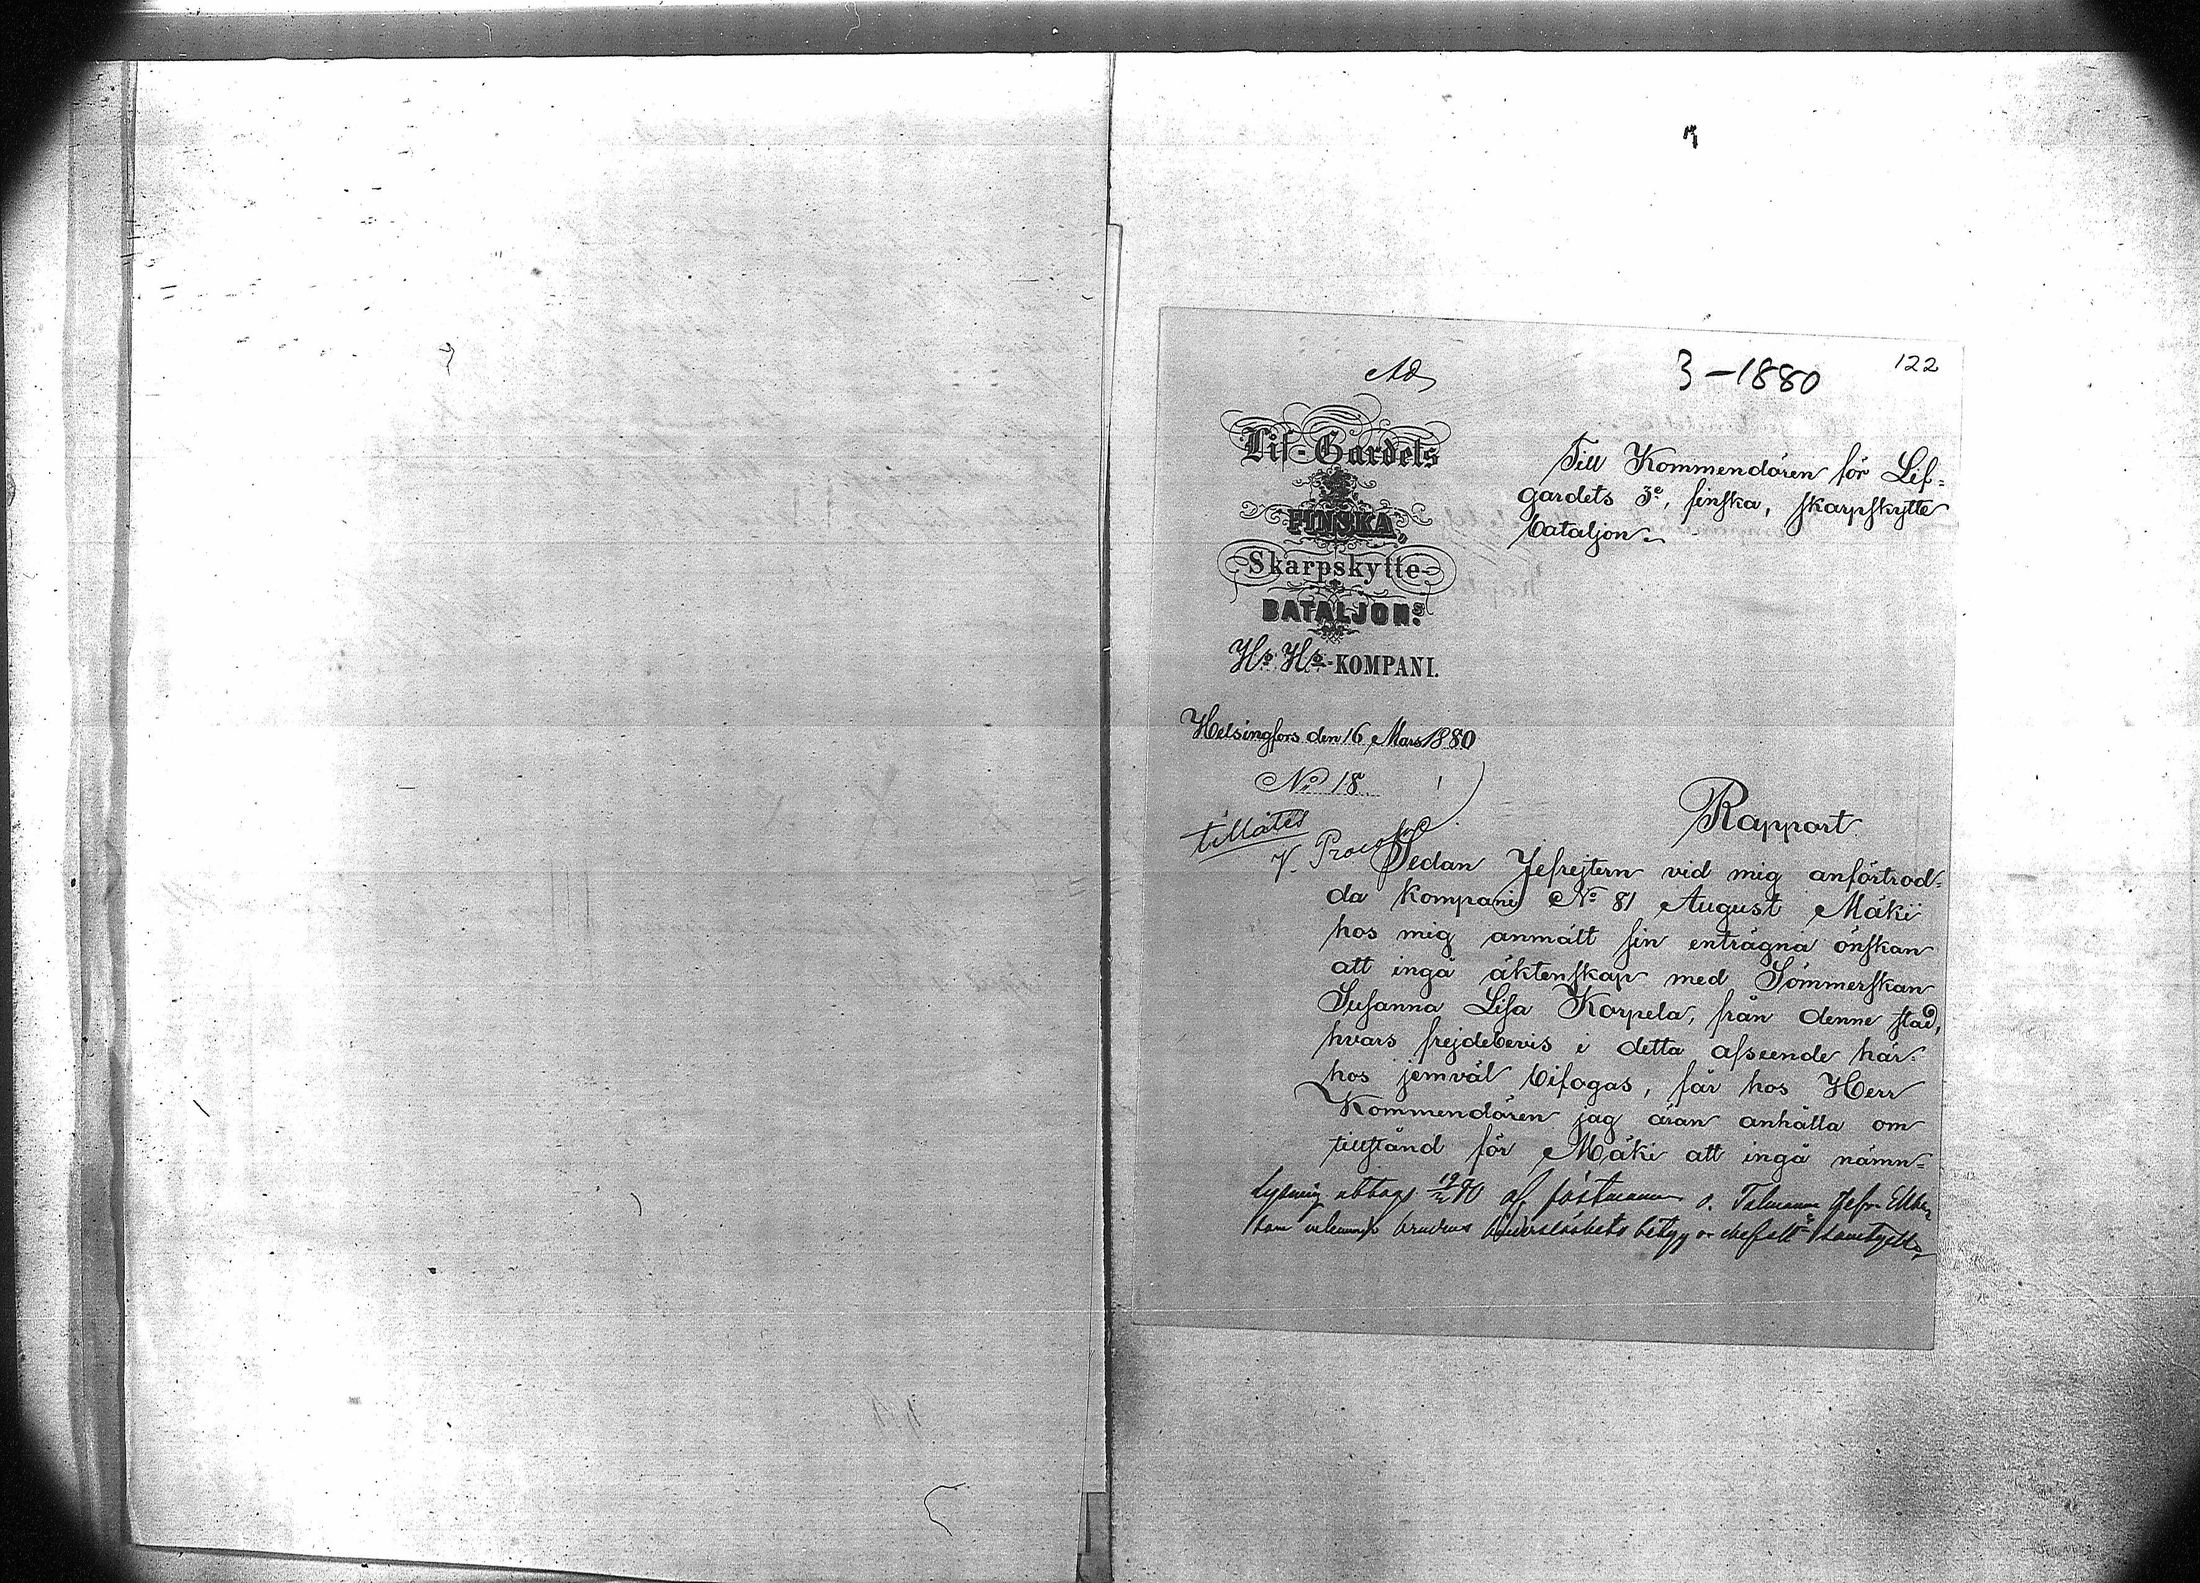 3-1880
122
Ad
Lif-Gardets
FINSKA,
Skarpskytte-
BATALJONS
H:s H:s-KOMPANI.
Till Kommendören för Lif-
gardets 3e, finska, skarpskytte
bataljon.
Helsingfors den 16 Mars 1880
No 18
tillåtes
V. Procopé
Rapport
Sedan Jefrejtern vid mig anförtrod-
da kompani No 81 August Mäki
hos mig anmält sin enträgna önskan
att ingå äktenskap med Sömmerskan
Susanna Lisa Korpela, från denne stad,
hvars frejdebevis i detta afseende här-
hos jemväl bifogas, får hos Herr
Kommendören jag äran anhålla om
tillstånd för Mäki att ingå nämn-
Lysning uttogs af fästmannen o. Talmannen Jefr.
som brudens betyg